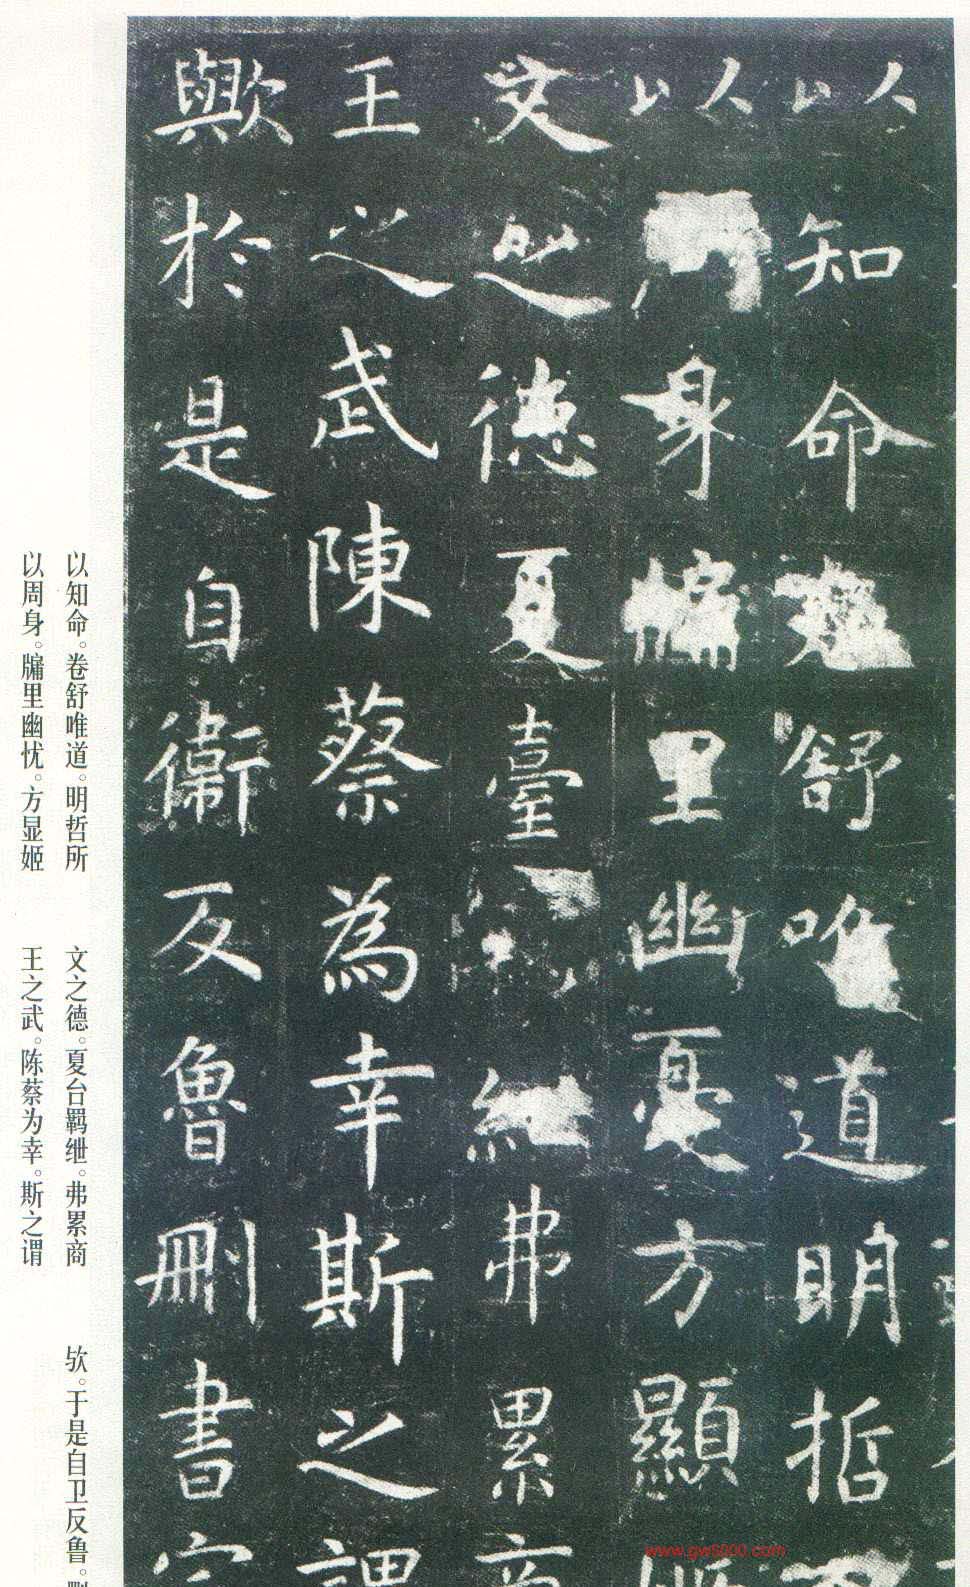 以知命舒唯道明哲
以身牖里幽憂方顯
文之德夏臺弗累商
王之武陳蔡為幸斯之謂
歟於是自衛反魯刪書定
以知命。卷舒唯道。明哲所
以周身。牖里幽忧。方显姬
文之德。夏台羁绁。弗累商
王之武。陈蔡为幸。斯之谓
欤。于是自卫反鲁。删
www.gw5000.com